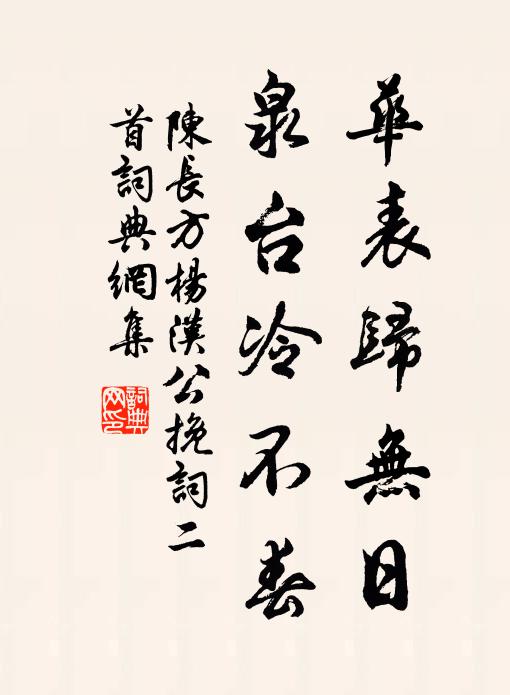 華表歸無日
泉台冷不春
陳長方楊漢公挽詞二
首詞典網集
詞典
网印